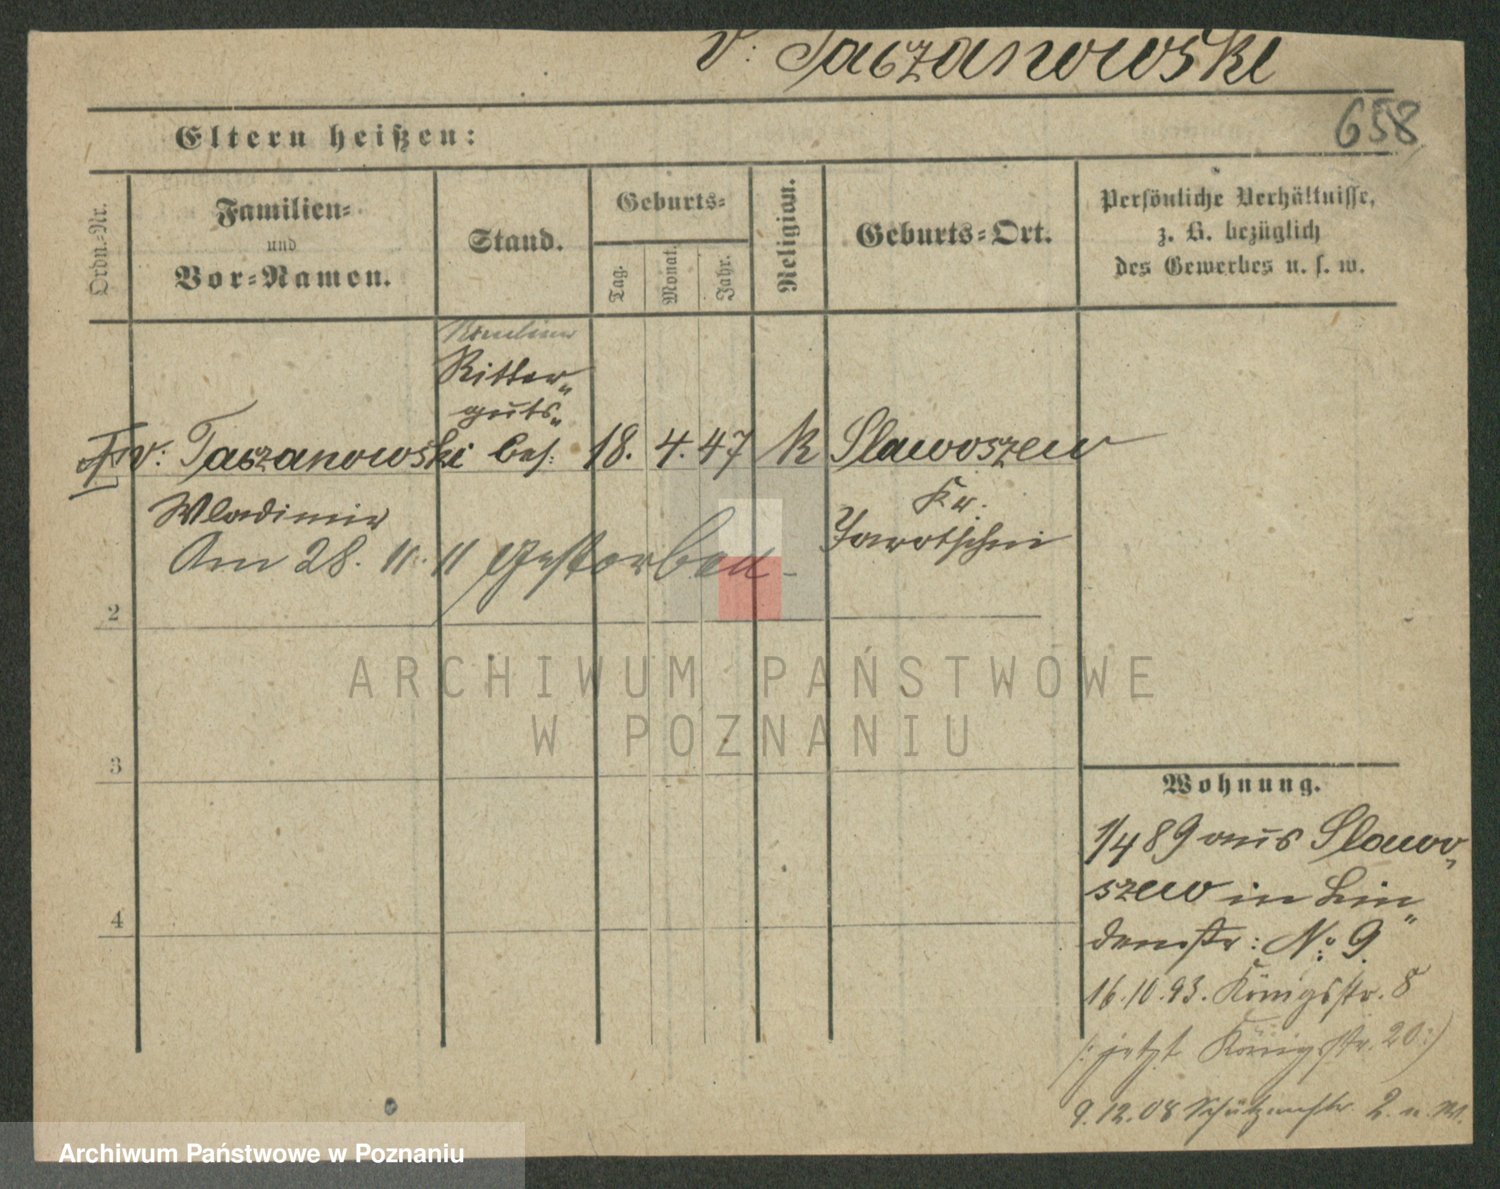 v. Taczanowski
658
Eltern heißen:
Ordn.-Nr.
Familien-
und
Vor-Namen.
Stand.
Geburts-
Tag.
Monat.
Jahr.
Religion.
Geburts-Ort.
Persönliche Verhältnisse,
z. B. bezüglich
des Gewerbes u. s. w.
Ritter„
guts„
v: Taczanowski bes: 18. 4. 47 K Slawoszew
Wladimir
Kr:
Jarotschin
Am 28. 11. 11 gestorben
2
3
4
ARCHIWUM PAŃSTWOWE
W POZNANIU
Wohnung.
1/4 89 aus Slawo„
szew in Lin„
denstr: No: 9.
16.10.93. Königsstr. 8
/: jetzt Königstr. 20:/
9.12.08 Schützenstr 2. n. M.
Archiwum Państwowe w Poznaniu